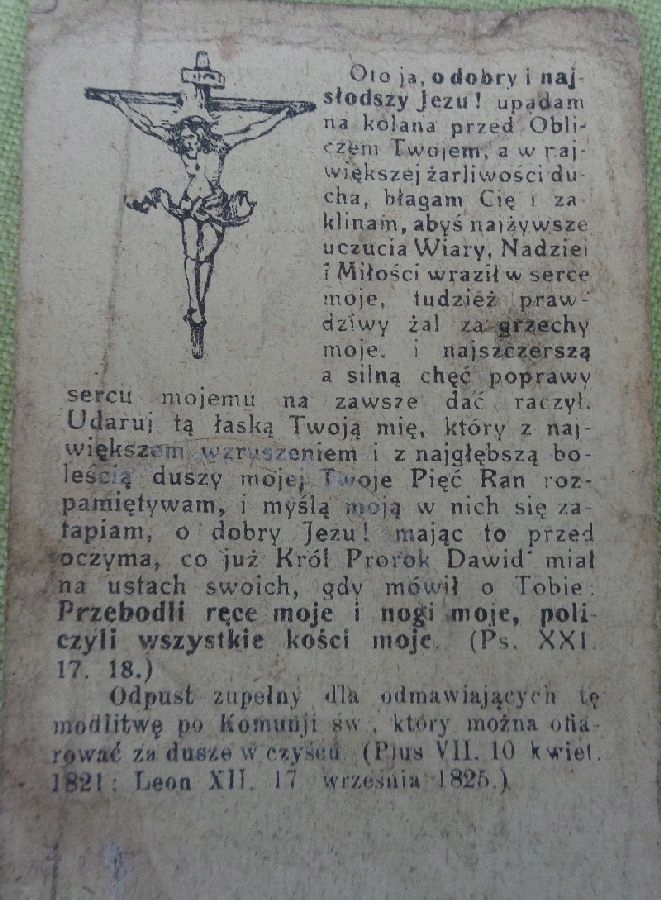 Oto ja, o dobry i naj-
słodszy Jezu! upadam
na kolana przed Obli-
czem Twojem, a w naj-
większej żarliwości du-
cha, błagam Cię i za
klinam, abyś najżywsze
uczucia Wiary, Nadziei
i Miłości wraził w serce
moje, tudzież praw-
dziwy żal za grzechy
moje. i najszczerszą
a silną chęć poprawy
sercu mojemu na zawsze dać raczył.
Udaruj tą łaską Twoją mię, który z naj-
większem wzruszeniem i z najgłębszą bo-
leścią duszy mojej Twoje Pięć Ran roz-
pamiętywam, i myślą moją w nich się za-
tapiam, o dobry Jezu! mając to przed
oczyma, co już Król Prorok Dawid miał
na ustach swoich, gdy mówił o Tobie:
Przebodli ręce moje i nogi moje, poli-
czyli wszystkie kości moje. (Ps. XXI.
17. 18.)
Odpust zupełny dla odmawiających tę
modlitwę po Komunji św., który można ofia-
rować za dusze w czyśćcu. (Pius VII. 10 kwiet.
1821; Leon XII. 17 września 1825.)